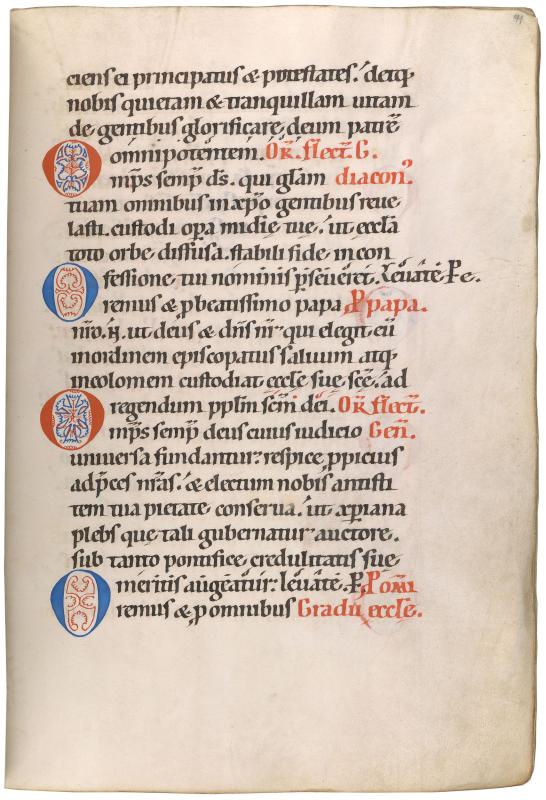 91
ciens ei principatus & potestates. detq;
nobis quietam & tranquillam uitam
de gentibus glorificare deum patrē
omnipotentem. Or̄. flect̄. G.
Omps semp ds. qui glam diacon.
tuam omnibus in xpo gentibus reue
lasti. custodi opa midie tue. ut eccla
toto orbe diffusa. stabili fide in con
fessione tui nominis pseueret. Leuate. P̄c.
Oremus & p beatissimo papa P papa.
nro. N. ut deus & dns nr qui elegit eū
in ordinem episcopatus saluum atq;
incolomem custodiat eccle sue sce. ad
regendum pplm scm dei. Or̄. flect̄.
Omps semp deus cuius iudicio Gen.
uniuersa fundantur respice ppicius
ad pces nras. & electum nobis antisti
tem tua pietate conserua. ut xpiana
plebs que tali gubernatur auctore.
sub tanto pontifice credulitatis sue
meritis augeatur. Leuate. P̄. P omi
Oremus & p omnibus Gradu eccle.